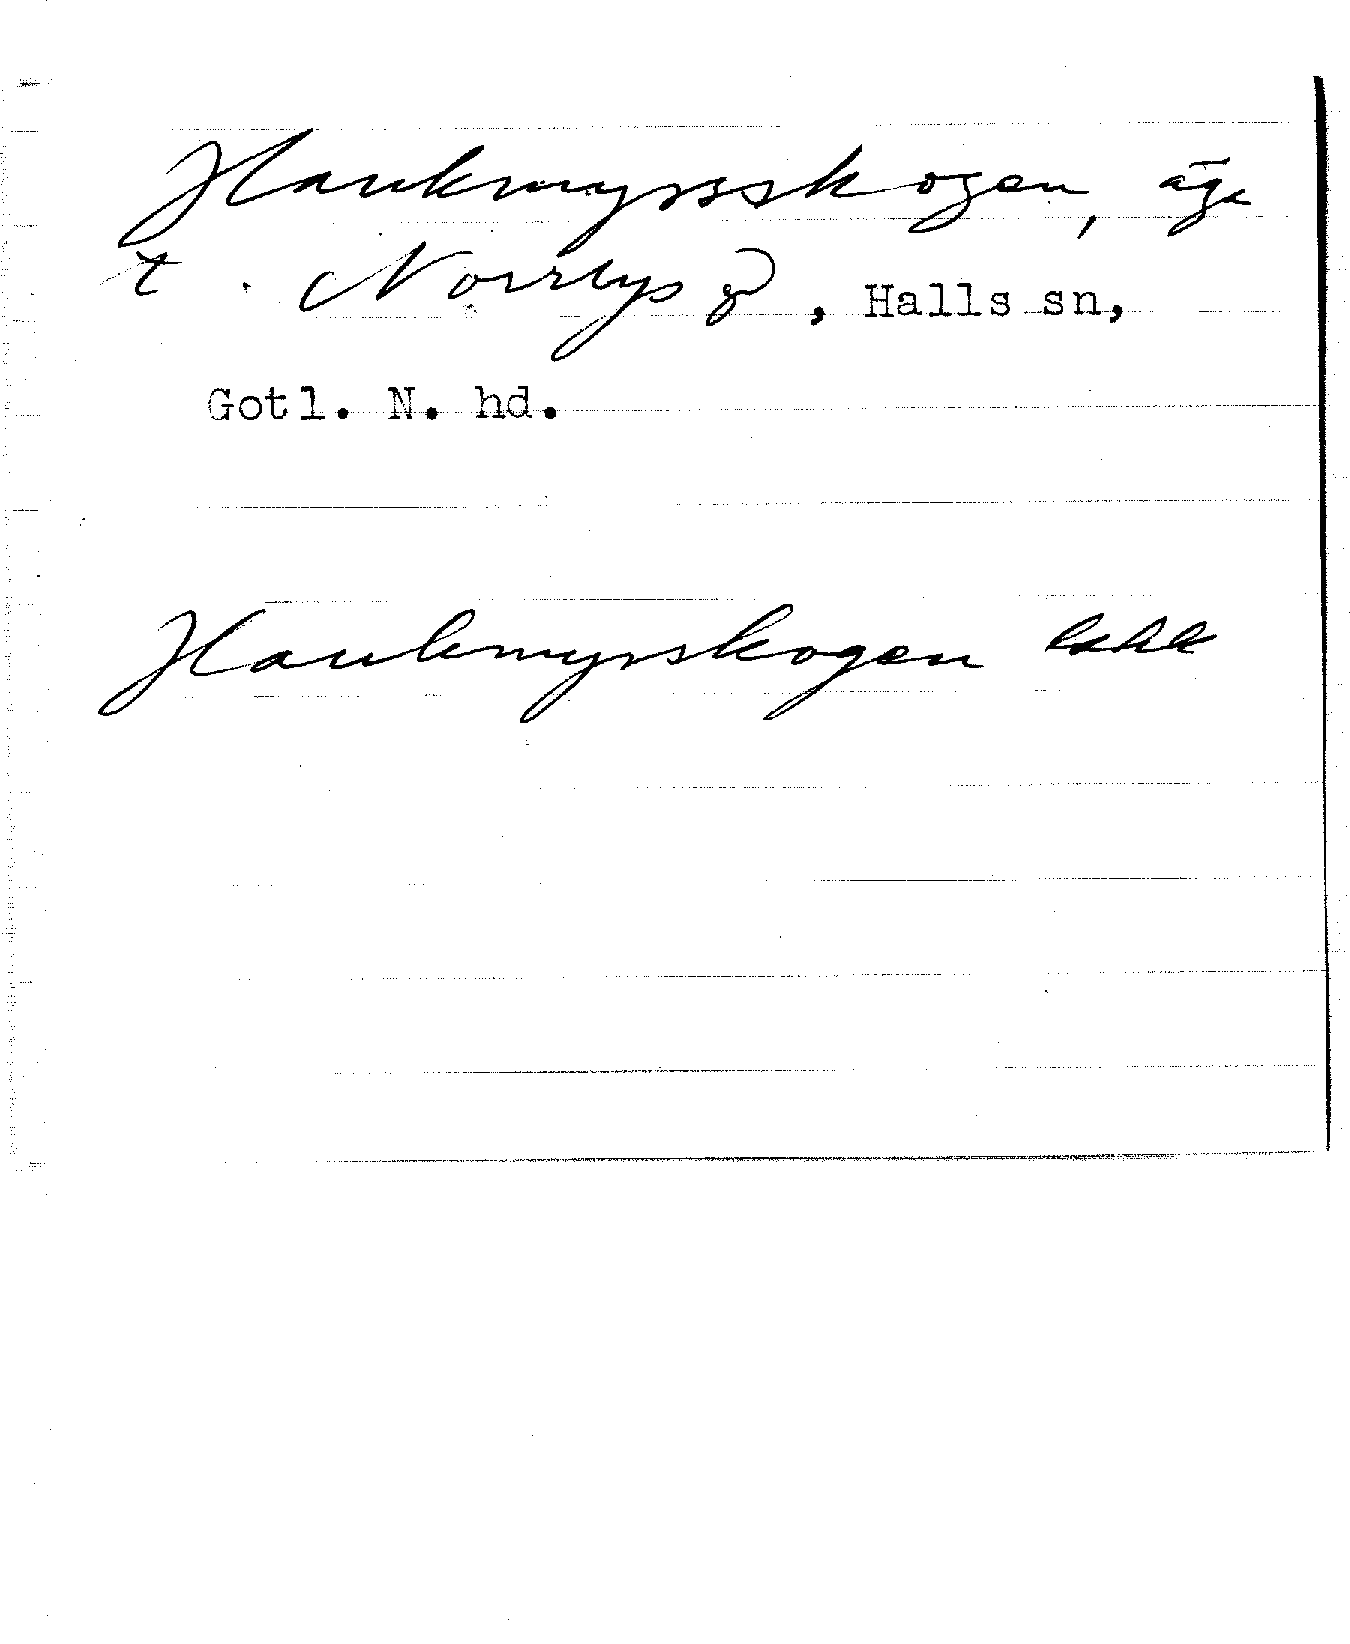 Haukmyrsskogen, äga
t. Norrbys gd, Halls sn,
Gotl. N. hd.
Haukmyrskogen